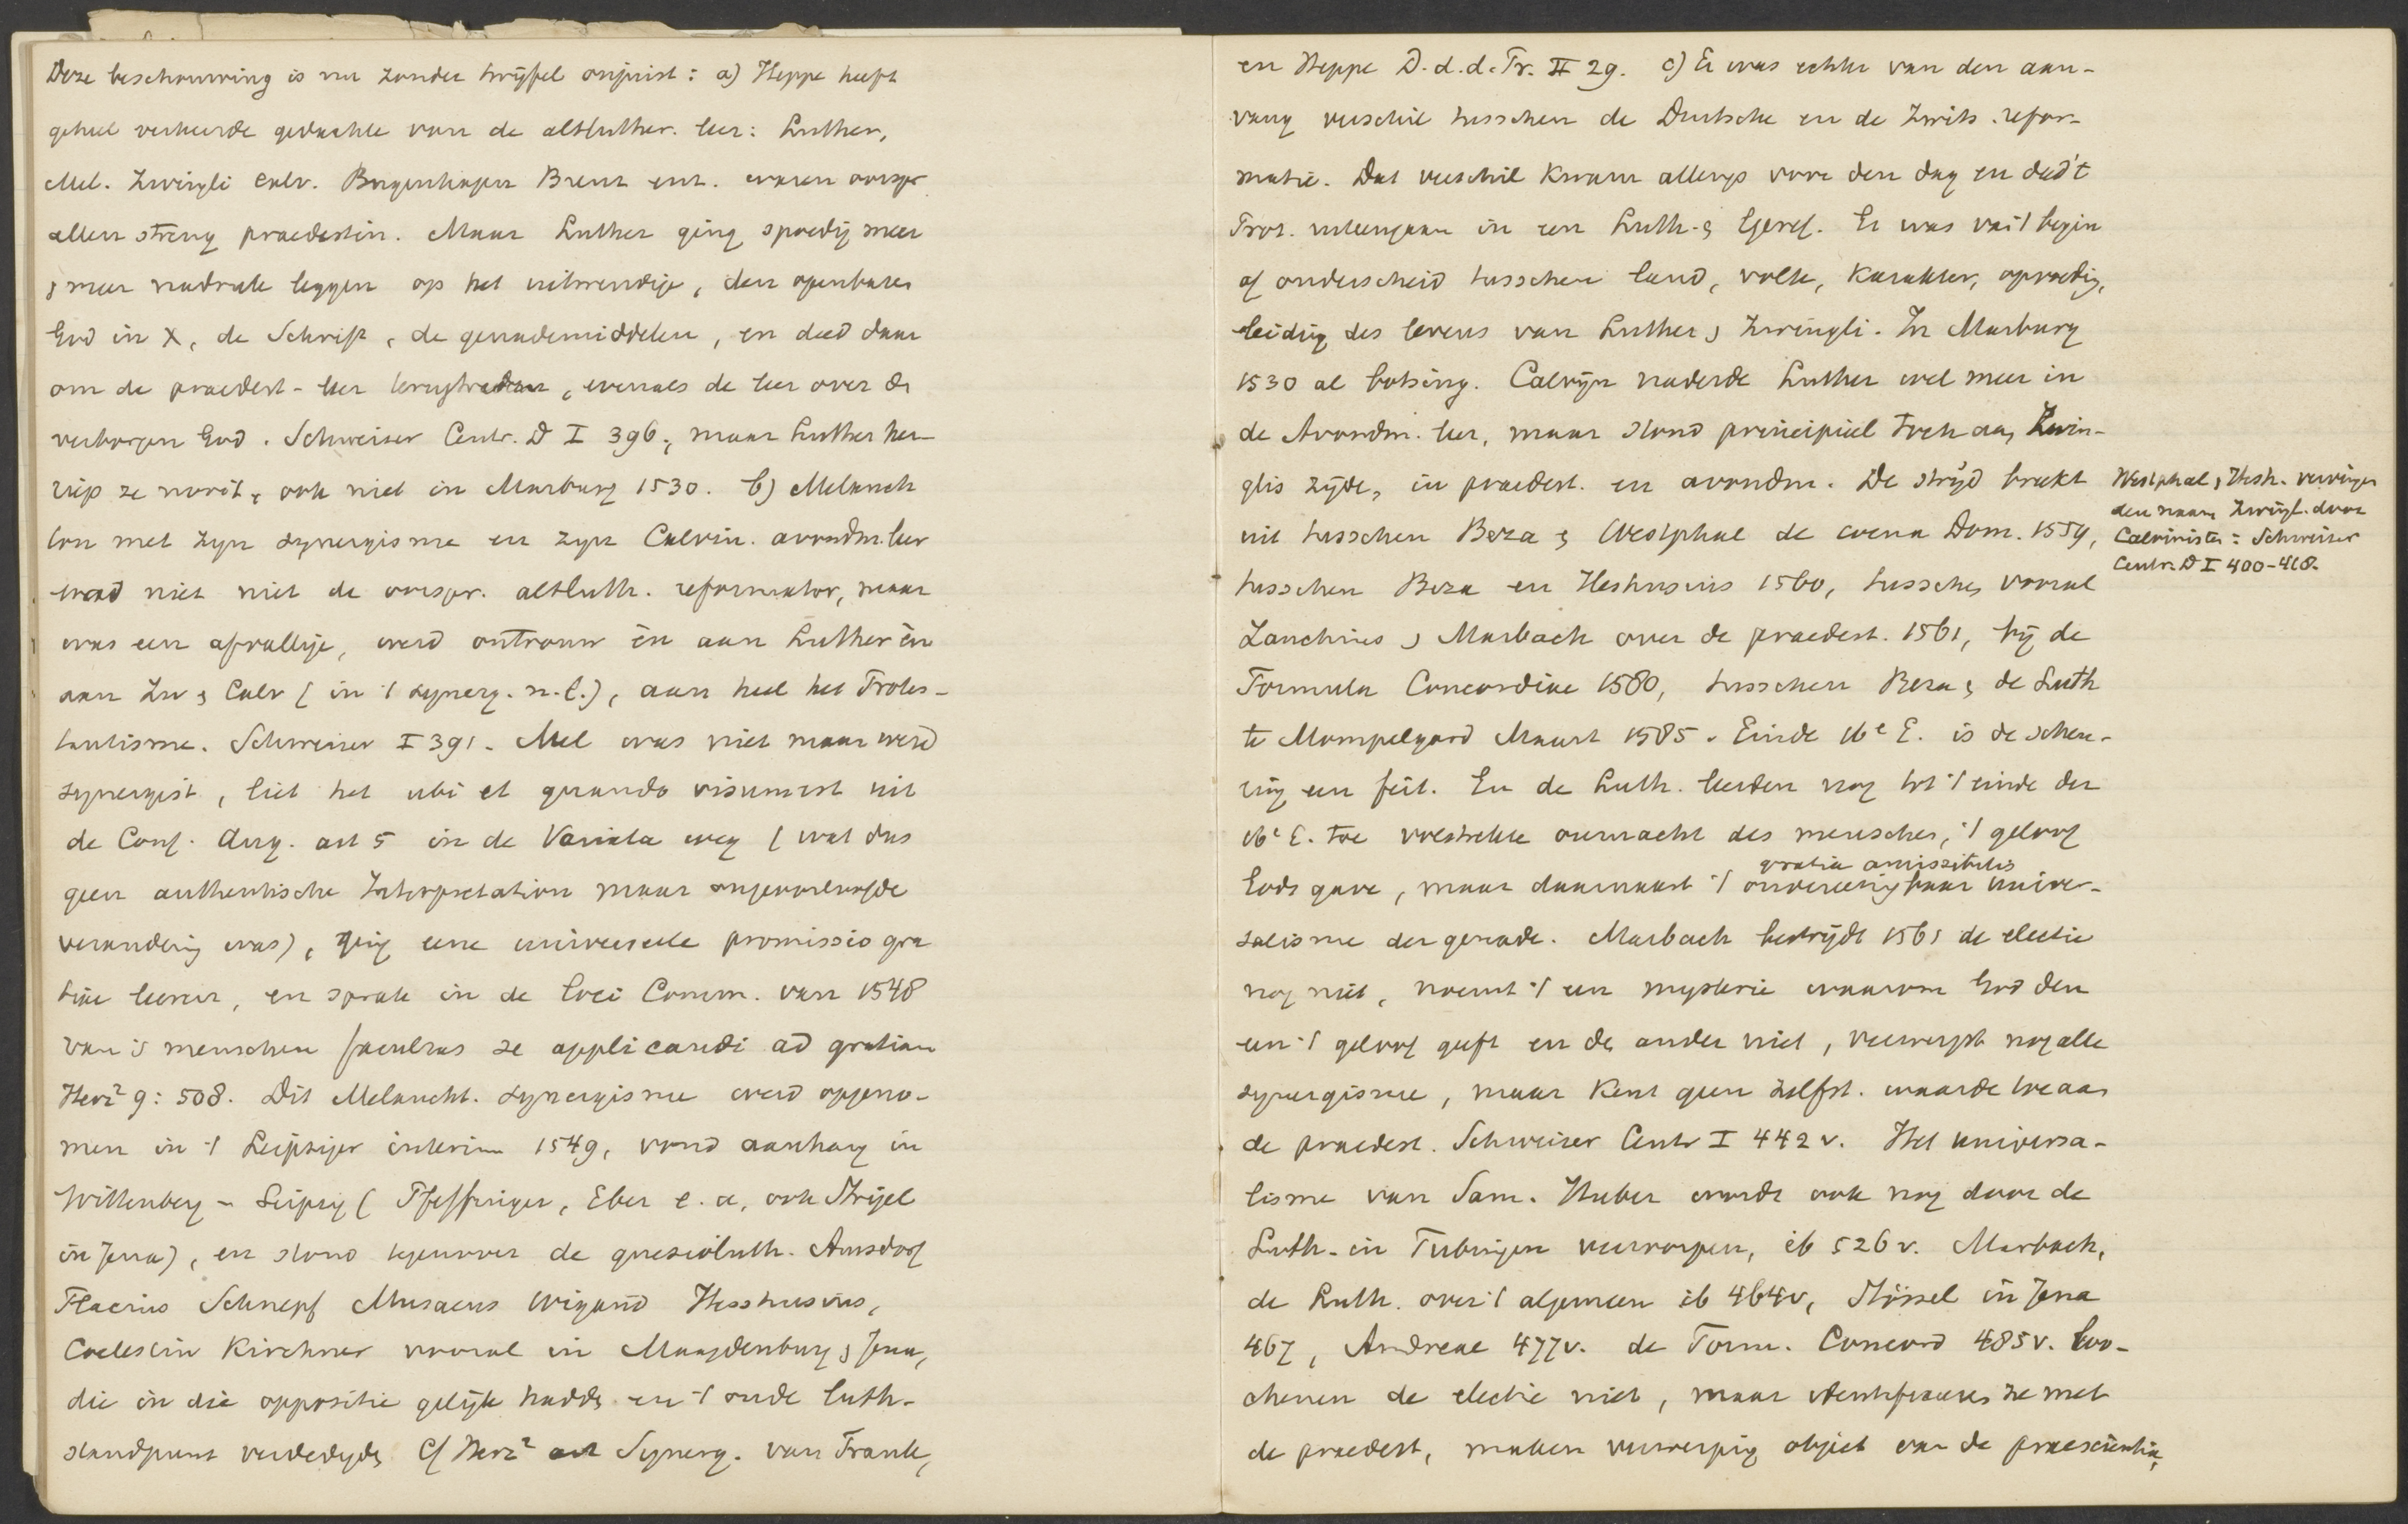 Deze beschouwing is nu zonder twijfel onjuist: a) Heppe heeft
geheel verkeerde gedachte van de altluther. leer: Luther,
Mel. Zwingli Calv. Bugenhagen Brenz enz. waren oorspr
allen streng praedestin. Maar Luther ging spoedig meer
& meer nadruk leggen op het uitwendige, den openbaren
God in X, de Schrift, de genademiddelen, en deed daar
om de praedest-leer terugtreden, evenals de leer over de
verborgen God. Schweizer Centr. D I 396, maar Luther her-
riep ze nooit, ook niet in Marburg 1530. b) Melanch
ton met zijn synergisme en zijn Calvin. avondm.leer
was niet de oorspr. altluth. reformator, maar
was een afvallige, werd ontrouw èn aan Luther èn
aan Zw & Calv (in 't synerg. n.l.), aan heel het Protes-
tantisme. Schweizer I 391. Mel was niet maar werd
synergist, liet het ubi et quando visum est uit
de Conf. Aug. art 5 in de Variata weg (wat dus
geen authentische Interpretation maar ongeoorloofde
verandering was), ging eene universeele promissio gra
tiae leeren, en sprak in de loci Comm. van 1548
van 's menschen facultas se applicandi ad gratiam
Herz² 9: 508. Dit Melancht. synergisme werd opgeno-
men in 't Leipziger interim 1549, vond aanhang in
Wittenberg - Leipzig (Pfeffinger, Eber e.a, ook Strigel
in Jena), en stond tegenover de gnesioluth. Amsdorf
Flacius Schnepf Musaeus Wigand Hesshusius,
Coelestin Kirchner vooral in Maagdenburg & Jena,
die in die oppositie gelijk hadden en 't oude luth-
standpunt verdedigden Cf Herz² art Synerg. van Frank,
en Heppe D.d.d.Pr. II 29. c) Er was echter van den aan-
vang verschil tusschen de Duitsche en de Zwits. refor-
matie. Dat verschil kwam allengs voor den dag en deed 't
Prot. uiteengaan in een Luth. & Geref. Er was van 't begin
af onderscheid tusschen land, volk, karakter, opvoeding,
leiding des levens van Luther & Zwingli. In Marburg
1530 al botsing. Calvijn naderde Luther wel meer in
de Avondm. leer, maar stond principieel toch aan Zwin-
glis zijde, in praedest. en avondm. De strijd breekt
uit tusschen Beza & Westphal de coena Dom. 1559,
tusschen Beza en Heshusius 1560, tusschen vooral
Zanchius & Marbach over de praedest. 1561, bij de
Formula Concordiae 1580, tusschen Beza & de Luth
te Mompelgard Maart 1585. Einde 16e E. is de scheu-
ring een feit. En de Luth. leerden nog tot 't einde der
16e E. toe volstrekte onmacht des menschen, 't geloof
gratia amissibilis
Gods gave, maar daarnaast 't onvereenigbaar univer-
salisme der genade. Marbach bestrijdt 1561 de electie
nog niet, noemt 't een mysterie waarom God den
een 't geloof geeft en de ander niet, verwerpt nog alle
synergisme, maar kent geen zelfst. waarde toe aan
de praedest. Schweizer Centr I 442 v. Het universa-
lisme van Sam. Huber wordt ook nog door de
Luth. in Tubingen verworpen, ib 526 v. Marbach,
de Luth. over 't algemeen ib 464v, Stössel in Jena
467, Andreae 477v. de Form. Concord 485v. loo-
chenen de electie niet, maar identificeeren ze met
de praedest, maken verwerping object van de praescientia,
Westphal & Hesh. vervingen
den naam Zwingl. door
Calvinisten: Schweizer
Centr. D I 400-418.